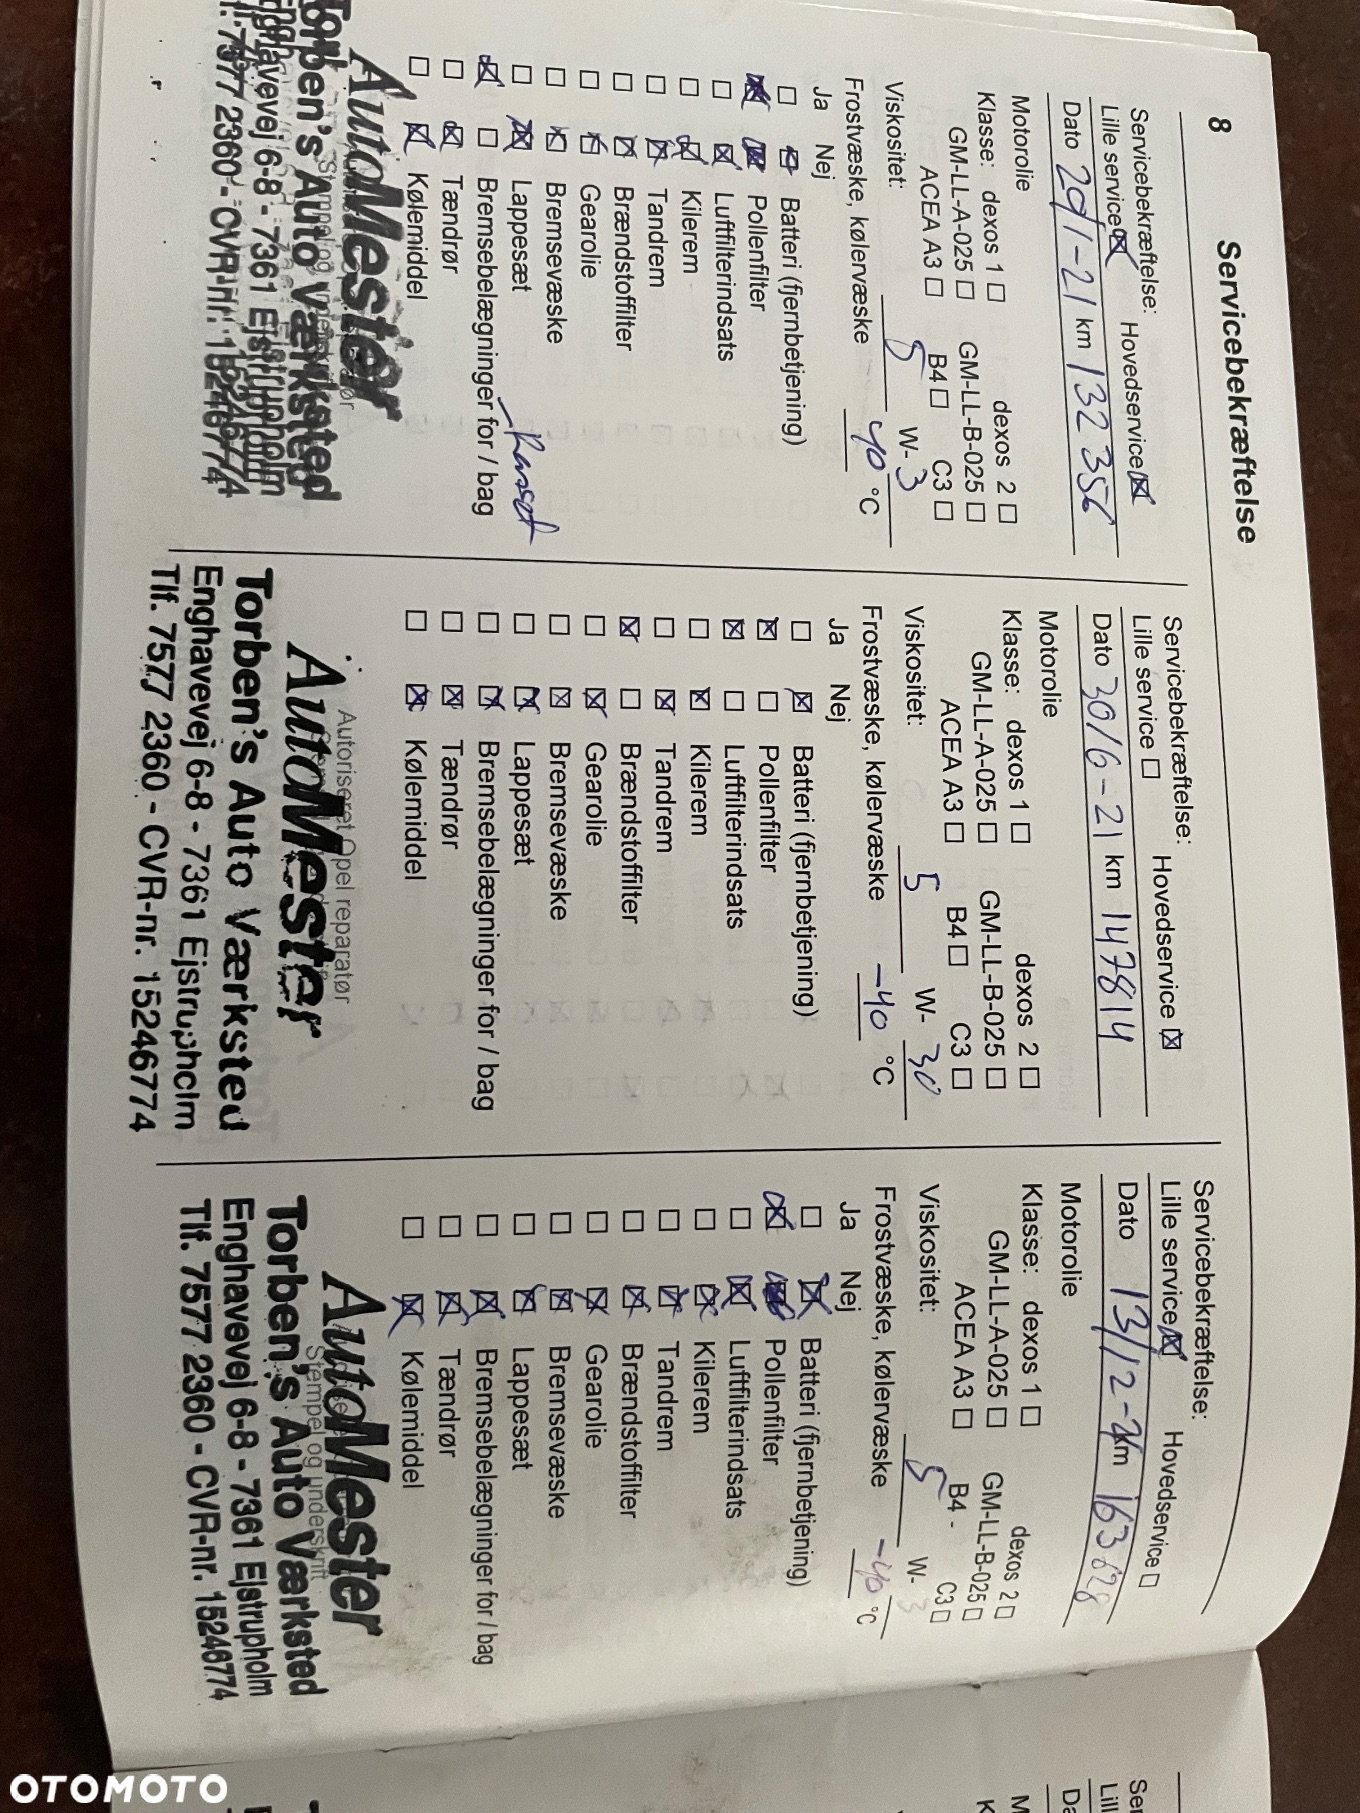 8 Servicebekræftelse
Servicebekræftelse:
Lille service Hovedservice
Dato 29/1-21 km 132 356
Motorolie
Klasse: dexos 1 dexos 2
GM-LL-A-025 GM-LL-B-025
ACEA A3 B4 C3
Viskositet: 5 W- 3
Frostvæske, kølervæske -40 °C
Ja Nej
Batteri (fjernbetjening)
Pollenfilter
Luftfilterindsats
Kilerem
Tandrem
Brændstoffilter
Gearolie
Bremsevæske
Lappesæt
Bremsebelægninger for / bag
Tændrør
Kølemiddel
AutoMester
Torben's Auto Værksted
Enghavevej 6-8 - 7361 Ejstrupholm
Tlf. 7577 2360 - CVR-nr. 15246774
Servicebekræftelse:
Lille service Hovedservice
Dato 30/6-21 km 147814
Motorolie
Klasse: dexos 1 dexos 2
GM-LL-A-025 GM-LL-B-025
ACEA A3 B4 C3
Viskositet: 5 W- 30
Frostvæske, kølervæske -40 °C
Ja Nej
Batteri (fjernbetjening)
Pollenfilter
Luftfilterindsats
Kilerem
Tandrem
Brændstoffilter
Gearolie
Bremsevæske
Lappesæt
Bremsebelægninger for / bag
Tændrør
Kølemiddel
Autoriseret Opel reparatør
AutoMester
Torben's Auto Værksted
Enghavevej 6-8 - 7361 Ejstrupholm
Tlf. 7577 2360 - CVR-nr. 15246774
Servicebekræftelse:
Lille service Hovedservice
Dato 13/12-21 km 163 828
Motorolie
Klasse: dexos 1 dexos 2
GM-LL-A-025 GM-LL-B-025
ACEA A3 B4 - C3
Viskositet: 5 W- 3
Frostvæske, kølervæske -40 °C
Ja Nej
Batteri (fjernbetjening)
Pollenfilter
Luftfilterindsats
Kilerem
Tandrem
Brændstoffilter
Gearolie
Bremsevæske
Lappesæt
Bremsebelægninger for / bag
Tændrør
Kølemiddel
AutoMester
Stempel og underskrift
Torben's Auto Værksted
Enghavevej 6-8 - 7361 Ejstrupholm
Tlf. 7577 2360 - CVR-nr. 15246774
OTOMOTO